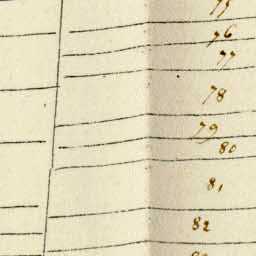 75
76
77
78
79
80
81
82